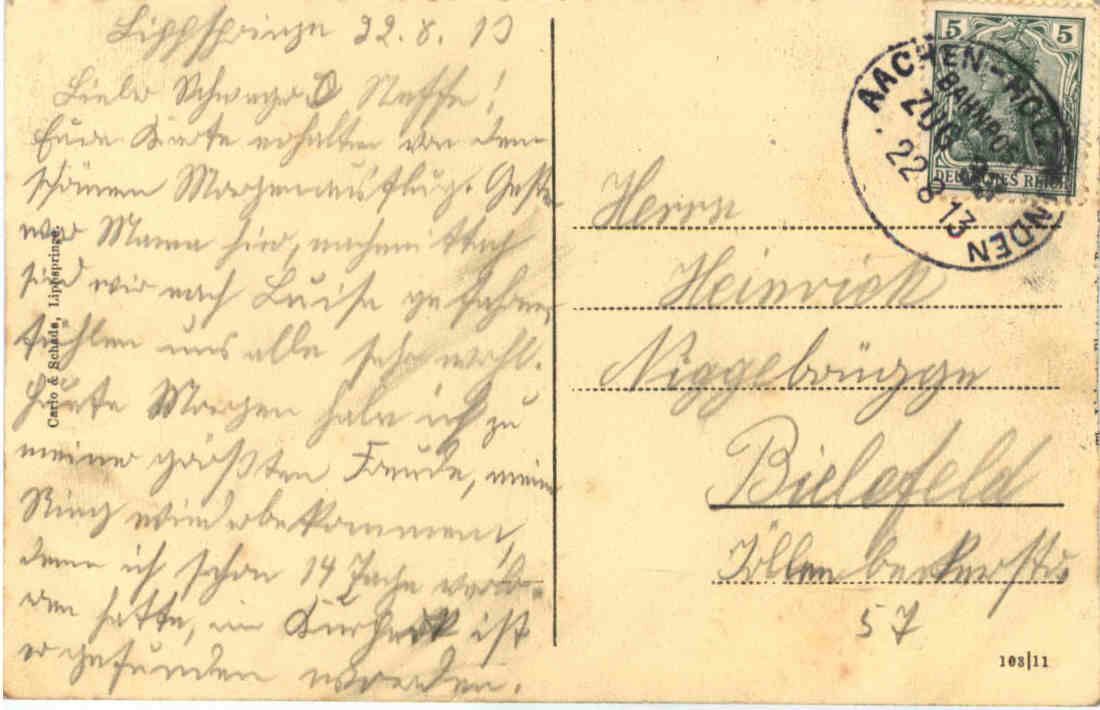 Lippspringe 22.8.13
Lieber Schwager & Neffe!
Eure Karte erhalten von dem
schönen Morgenausflug. Gestern
war Mama hier, nachmittag
sind wir nach Luise gefahren,
fühlen uns alle sehr wohl.
Heute Morgen habe ich zu
meiner größten Freude, meinen
Ring wiederbekommen,
denn ich schon 14 Tache verlo-
ren hatte, im Kurpark ist
er gefunden worden.
Carlo & Schade, Lippspringe.
5 5
DEUTSCHES REICH
AACHEN-HOLZMINDEN
BAHNPOST
ZUG
22 8 13
Herrn
Heinrich
Niggebrügge
Bielefeld
Jöllenbeckerstr.
57
103|11